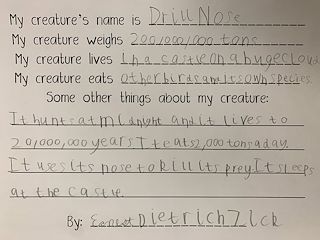 My creature's name is Drill Nose
My creature weighs 200,000,000 tons
My creature lives In a castle on a huge cloud
My creature eats other birds and Its own species.
Some other things about my creature:
It hunts at midnight and It lives to
20,000,000 years It eats 2,000 tons a day.
It uses Its nose to kill Its prey. It sleeps
at the castle.
By: Dietrich